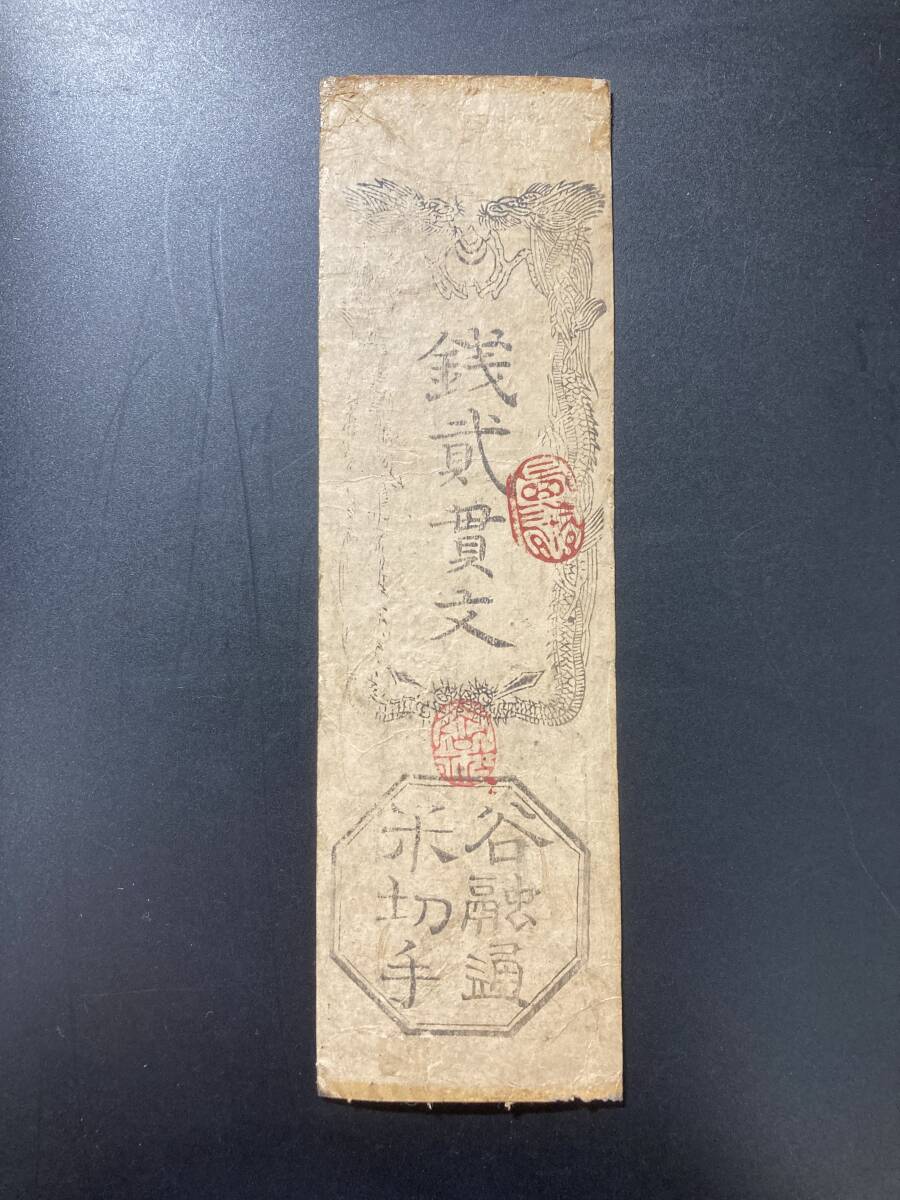 銭貳貫文
谷融通
米切手